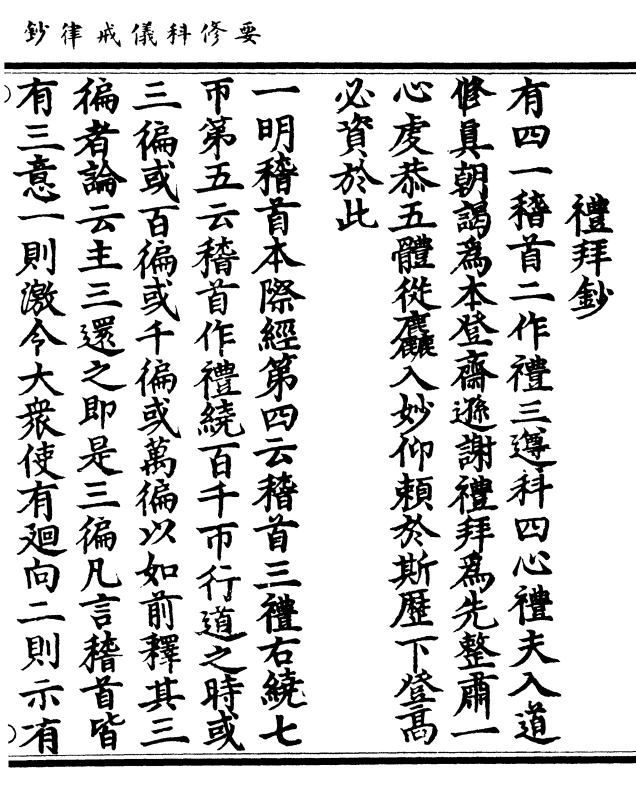 要修科儀戒律鈔
禮拜鈔
有四一稽首二作禮三遵科四心禮夫入道
修真朝謁為本登齋遜謝禮拜為先整肅一
心虔恭五體從麤入妙仰賴於斯歷下登高
必資於此
一明稽首本際經第四云稽首三禮右繞七
帀第五云稽首作禮繞百千帀行道之時或
三徧或百徧或千徧或萬徧以如前釋其三
徧者論云主三還之即是三徧凡言稽首皆
有三意一則激令大衆使有廻向二則示有